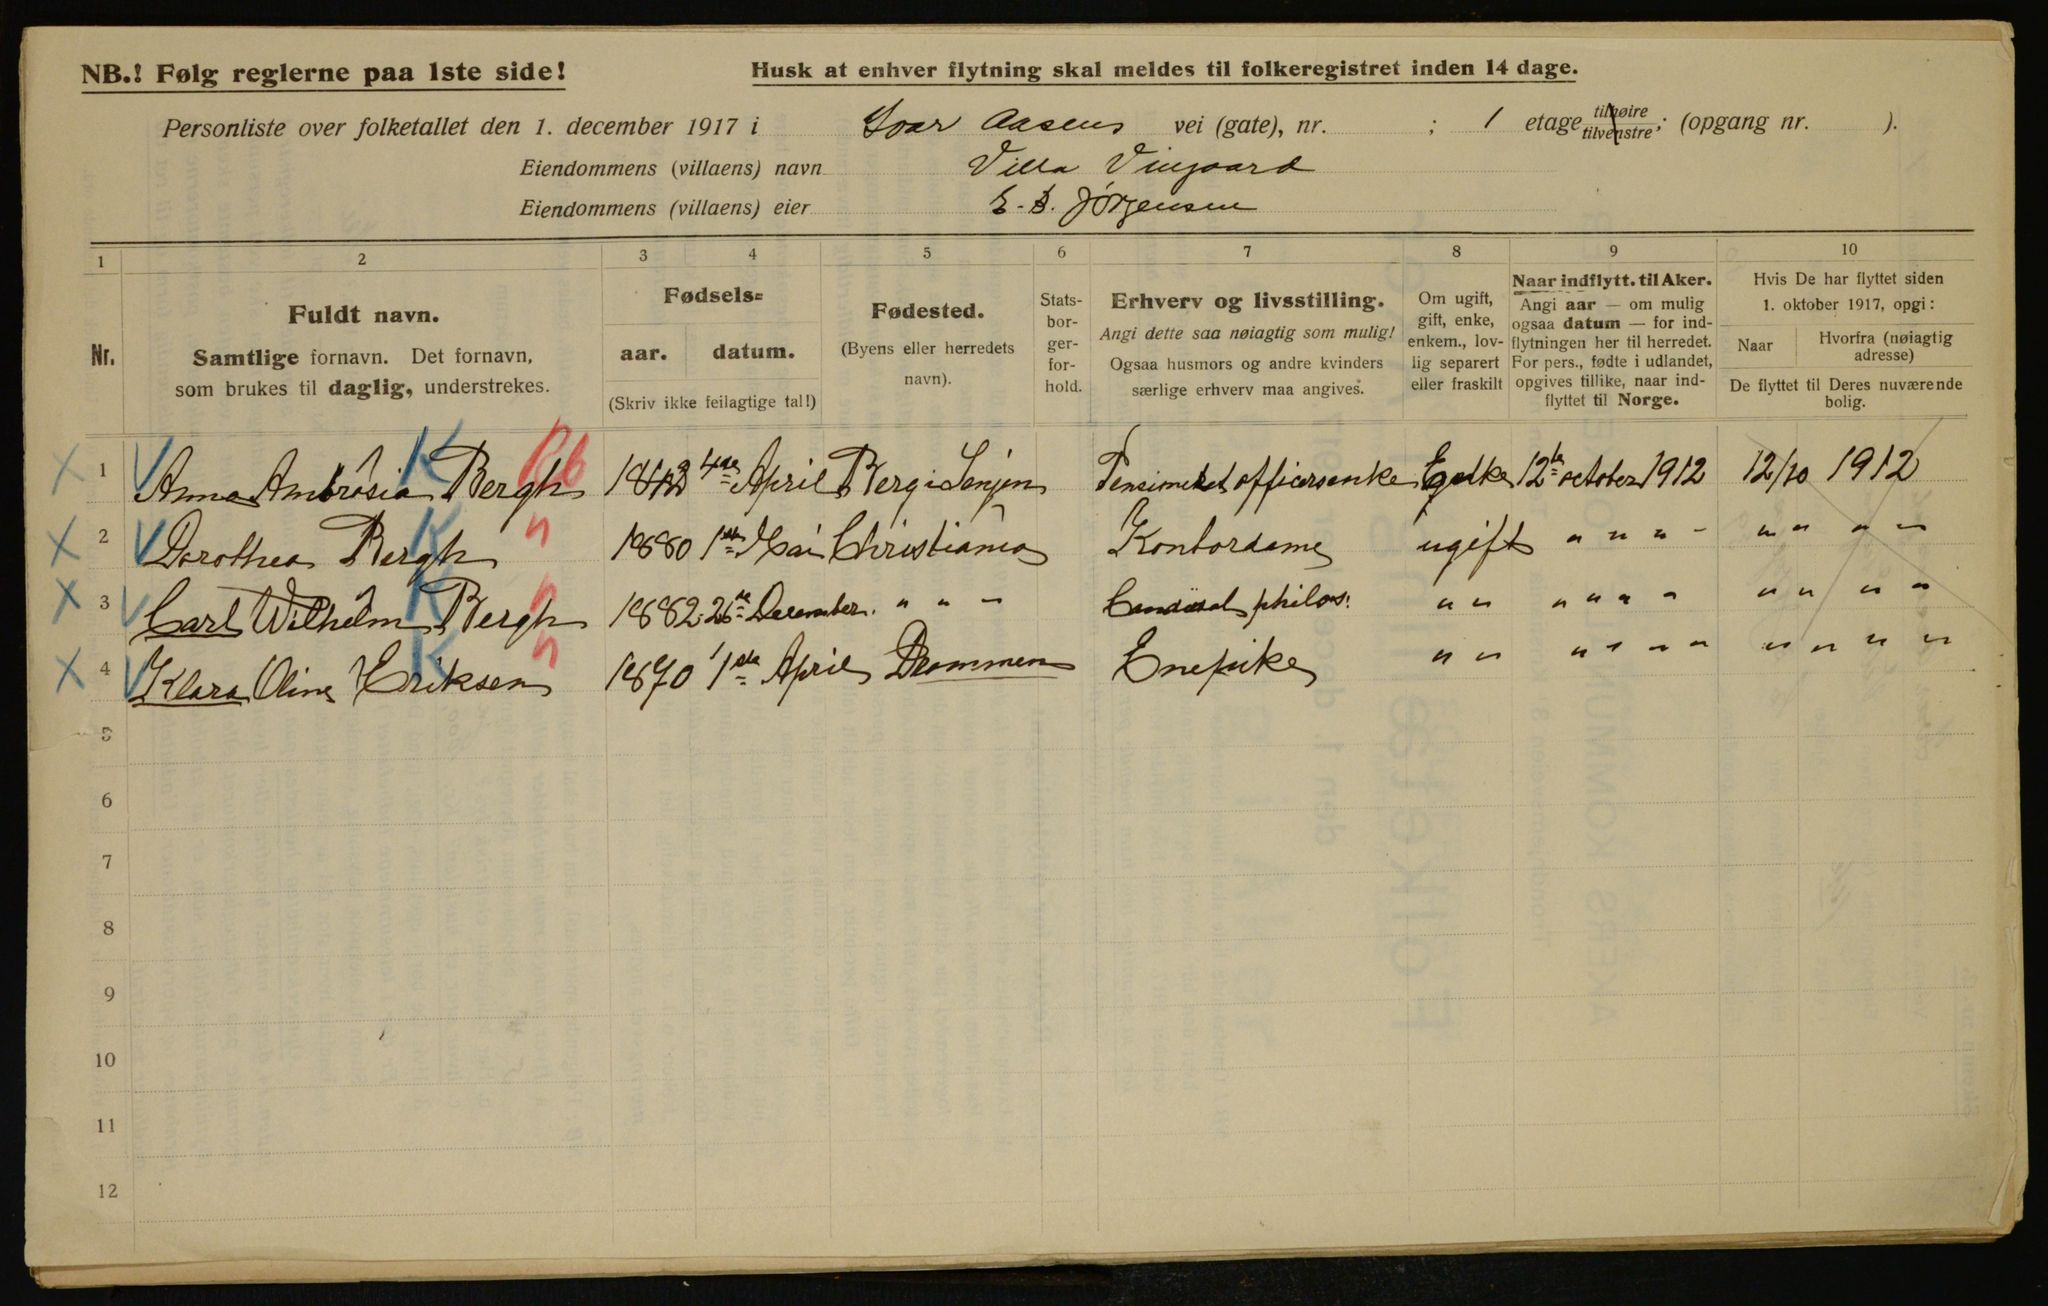 NB.! Følg reglerne paa 1ste side!
Husk at enhver flytning skal meldes til folkeregistret inden 14 dage.
Personliste over folketallet den 1. december 1917 i Ivar Aasens vei (gate), nr. ; 1 etage tilhøire tilvenstre; (opgang nr. ).
Eiendommens (villaens) navn Villa Vingaard
Eiendommens (villaens) eier E. S. Jørgensen
1 2 3 4 5 6 7 8 9 10
Nr.
Fuldt navn.
Samtlige fornavn. Det fornavn,
som brukes til daglig, understrekes.
Fødsels=
aar. datum.
(Skriv ikke feilagtige tal!)
Fødested.
(Byens eller herredets
navn).
Stats-
bor-
ger-
for-
hold.
Erhverv og livsstilling.
Angi dette saa nøiagtig som mulig!
Ogsaa husmors og andre kvinders
særlige erhverv maa angives.
Om ugift,
gift, enke,
enkem., lov-
lig separert
eller fraskilt
Naar indflytt. til Aker.
Angi aar — om mulig
ogsaa datum — for ind-
flytningen her til herredet.
For pers., fødte i udlandet,
opgives tillike, naar ind-
flyttet til Norge.
Hvis De har flyttet siden
1. oktober 1917, opgi:
Naar
Hvorfra (nøiagtig
adresse)
De flyttet til Deres nuværende
bolig.
X 1 V Anna Ambrosia K Bergh 4de April Berg i Senjen Pensioneret officersenke Enke 12te october 1912 12/10 1912
X 2 V Dorothea Bergh K n 1880 1ste Mai Christiania Kontordame ugift " " " " " " " "
X 3 V Carl Wilhelm K Bergh n 1882 26de December. " " " philos. " " " " " " " " " "
X 4 V Klara Oline K Eriksen n 1870 1ste April Drammen Enepike " " " " " " " " " "
5
6
7
8
9
10
11
12